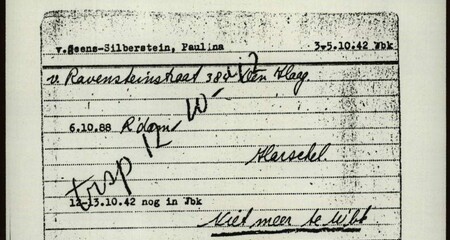 v.Geens-Silberstein, Paulina 3-5.10.42 Wbk
v. Ravensteinstraat 38 Den Haag.
6.10.88 R'dam
trsp 12-10-42
Harschel.
12-13.10.42 nog in Wbk
Niet meer te Wbk